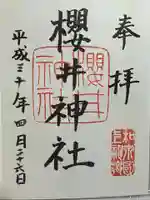 奉拝
櫻井神社
平成三十年四月二十六日